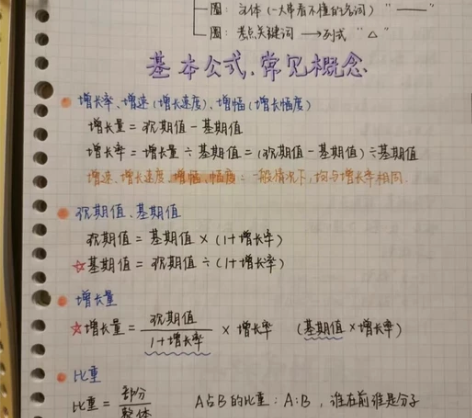 圈：主体（一大串看不懂的名词）"——"
圈：考点关键词→列式 "△"
基本公式、常见概念
增长率、增速（增长速度）、增幅（增长幅度）
增长量 = 现期值 - 基期值
增长率 = 增长量 ÷ 基期值 = (现期值 - 基期值) ÷ 基期值
增速、增长速度、增幅、幅度：一般情况下，均与增长率相同.
现期值、基期值
现期值 = 基期值 × (1+增长率)
☆基期值 = 现期值 ÷ (1+增长率)
增长量
☆增长量 = 现期值/1+增长率 × 增长率 (基期值×增长率)
比重
比重 = 部分/整体 A占B的比重：A÷B，谁在前谁是分子